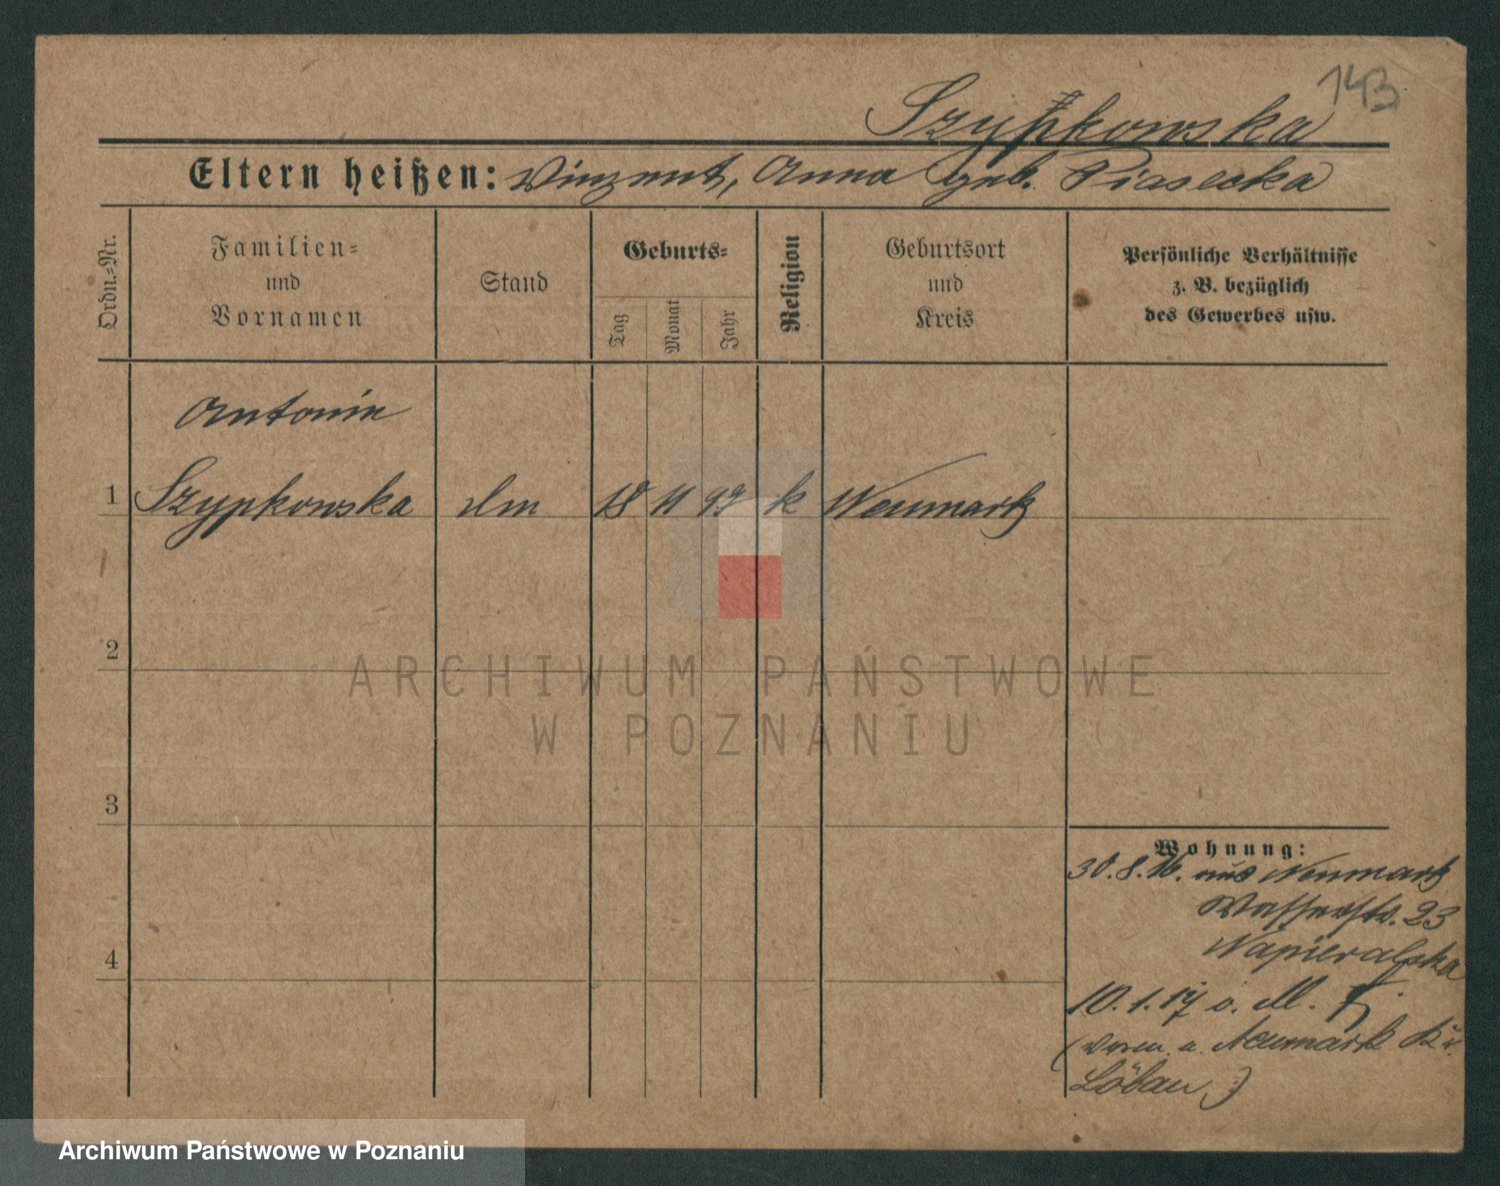 143
Szypkowska
Eltern heißen: Vinzent, Anna geb. Piasecka
Ordn.-Nr.
Familien-
und
Vornamen
Stand
Geburts-
Tag
Monat
Jahr
Religion
Geburtsort
und
Kreis
Persönliche Verhältnisse
z. B. bezüglich
des Gewerbes usw.
Antonie
1 Szypkowska 18 11 97 k Neumark
2
ARCHIWUM PAŃSTWOWE
W POZNANIU
3
Wohnung:
30.8.16. aus Neumark
Wasserstr. 23
Napieralska
4
10.1.17 o. M.
Neumark Kr.
Löbau)
Archiwum Państwowe w Poznaniu